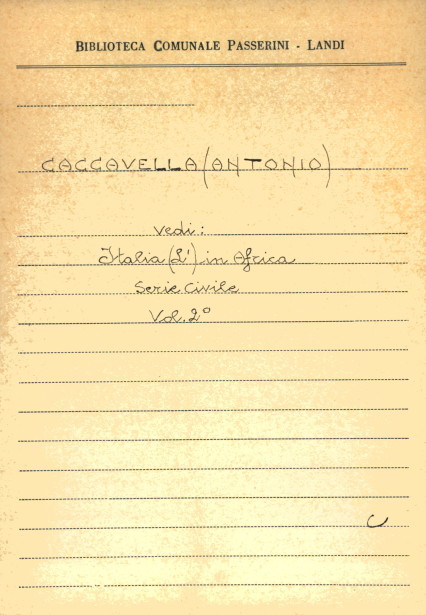 BIBLIOTECA COMUNALE PASSERINI - LANDI
CACCAVELLA (ANTONIO)
Vedi:
Italia (L') in Africa
Serie Civile
Vol. 2°
C